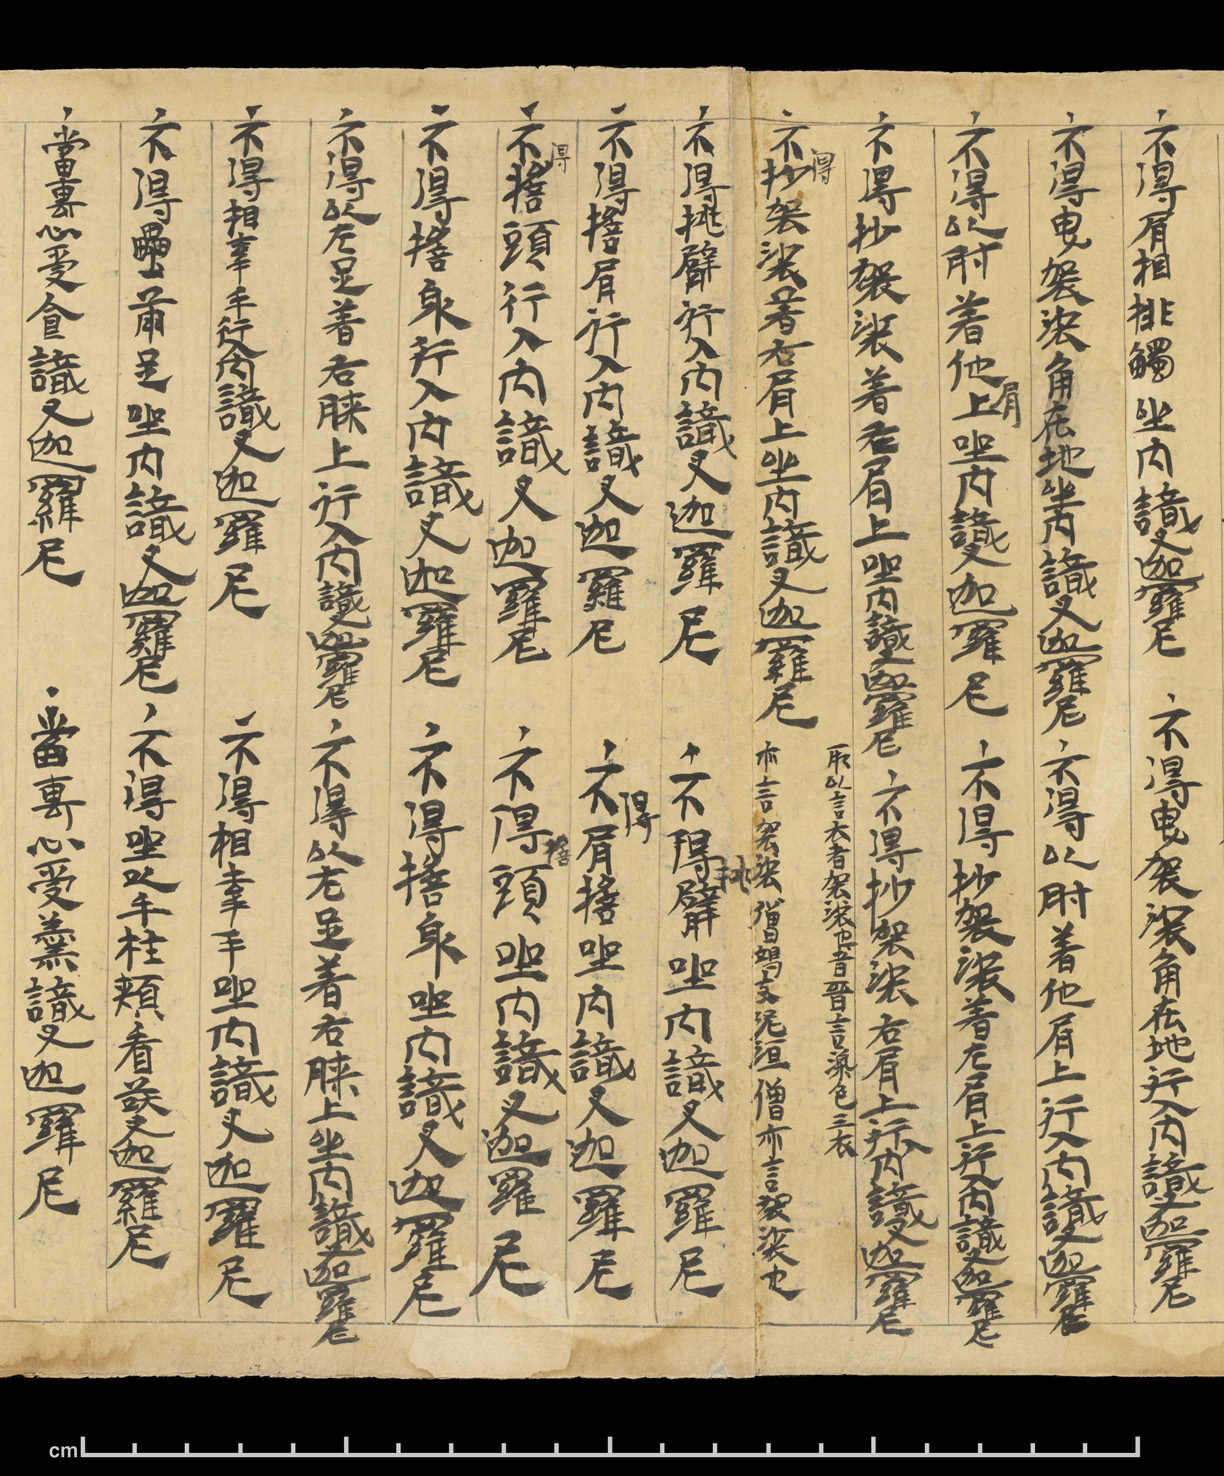 不得肩相排觸坐內識叉迦羅尼 不得曳袈裟角在地行入內識叉迦羅尼
不得曳袈裟角在地坐內識叉迦羅尼 不得以肘着他肩上行入內識叉迦羅尼
不得以肘着他肩上坐內識叉迦羅尼 不得抄袈裟着左肩上行入內識叉迦羅尼
不得抄袈裟着右肩上坐內識叉迦羅尼 不得抄袈裟右肩上行入內識叉迦羅尼
不得抄袈裟著右肩上坐內識叉迦羅尼 所以言衣者袈裟也晉言染色三衣
亦言袈裟僧竭支泥洹僧亦言袈裟也
不得挑臂行入內識叉迦羅尼 不得挑臂坐內識叉迦羅尼
不得搖肩行入內識叉迦羅尼 不得肩搖坐內識叉迦羅尼
不得搖頭行入內識叉迦羅尼 不得搖頭坐內識叉迦羅尼
不得搖身行入內識叉迦羅尼 不得搖身坐內識叉迦羅尼
不得以左足着右膝上行入內識叉迦羅尼 不得以左足着右膝上坐內識叉迦羅尼
不得相牽手行入內識叉迦羅尼 不得相牽手坐內識叉迦羅尼
不得壘兩足坐內識叉迦羅尼 不得坐以手柱頰看叉迦羅尼
當專心受食識叉迦羅尼 當專心受羹識叉迦羅尼